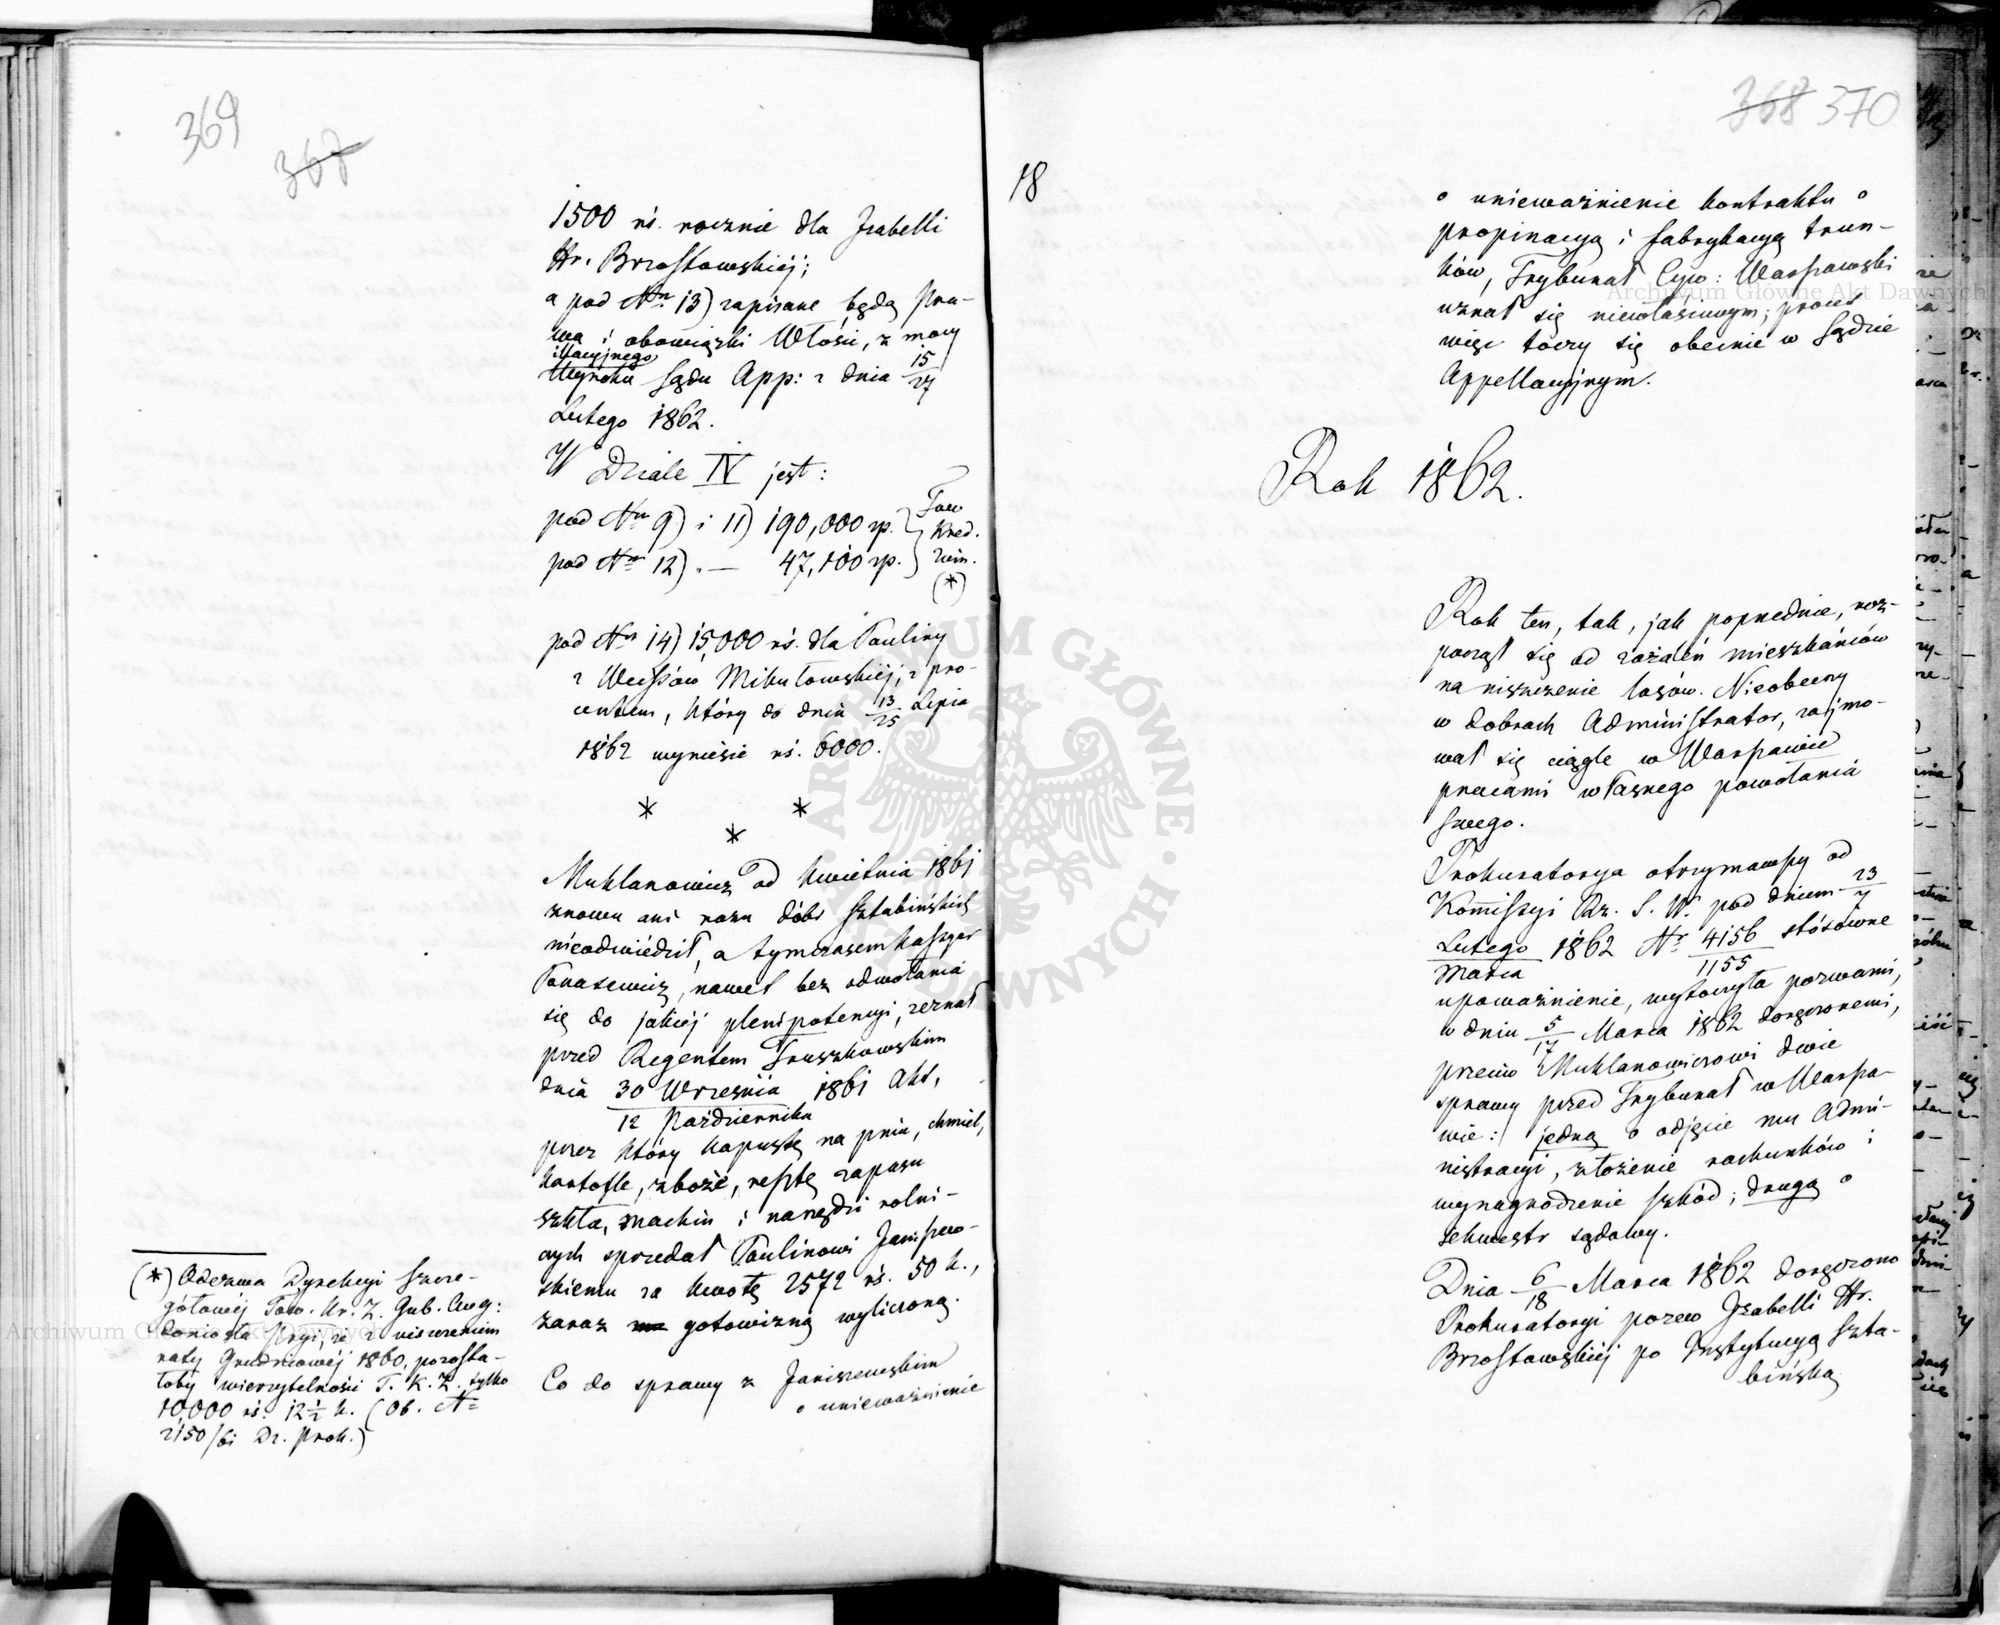 369
367
1500 rś. rocznie dla Izabelli
Hr. Brzostowskiéj;
a pod Nrm 13) zapisane będą pra-
wa i obowiązki Włośc, z mocy
illacyjnego
Wyroku Sądu App: z dnia 15/27
Lutego 1862.
W Dziale IV jest:
pod Nrm 9) i 11) 190,000 zp. } Tow
pod Nrm 12) . — 47,100 zp. } Kred.
Ziem.
(*)
pod Nrm 14) 15,000 rś. dla Pauliny
z Weyssów Mikułowskiéj, z pro-
centem, który do dnia 13/25 Lipca
1862 wyniesie rś. 6000.
* *
*
Muklanowicz od Kwietnia 1861
znowu ani razu dóbr Sztabińskich
nieodwiedził, a tymczasem Kasper
Panasewicz, nawet bez odwołania
się do jakiéj plenipotencyi, zeznał
przed Regentem Truszkowskim
dnia 30 Września / 12 Października 1861 Akt,
przez który kapustę na pniu, chmiel,
kartofle, zboże, resztę zapasu
szkła, machin i narzędzi rolni-
czych sprzedał Paulinowi Janiszew-
skiemu za kwotę 2572 rś. 50 k.,
zaraz gotowizną wyliczoną.
Co do sprawy z Janiszewskim
o unieważnienie
(*) Odezwa Dyrekcyi Szcze-
gółowéj Tow. Kr. Z. Gub. Aug:
doniosła Pryi, że z uiszczeniem
raty Grudniowéj 1860, pozosta-
łoby wierzytelności T. K. Z. tylko
10,000 rś. 12½ k. (Ob. N=
2150/61 Dz. Prok.)
368 370
18
o unieważnienie kontraktu o
propinacyą i fabrykacyą trun-
ków, Trybunał Cyw: Warszawski
uznał się niewłaściwym; proces
więc toczy się obecnie w Sądzie
Appellacyjnym.
Rok 1862.
Rok ten, tak, jak poprzednie, roz-
począł się od zażaleń mieszkańców
na niszczenie lasów. Nieobecny
w dobrach Administrator, zajmo-
wał się ciągle w Warszawie
pracami własnego powołania
swego.
Prokuratorya otrzymawszy od
Kommissyi Rz. S. W. pod dniem 23/7
Lutego/Marca 1862 Nr 4156/1155 stósowne
upoważnienie, wytoczyła pozwami,
w dniu 5/17 Marca 1862 doręczonemi,
przeciw Muklanowiczowi dwie
sprawy przed Trybunał w Warsza-
wie: jedną o odjęcie mu Admi-
nistracyi, złożenie rachunków i
wynagrodzenie szkód; drugą o
sekwestr sądowy.
Dnia 6/18 Marca 1862 doręczono
Prokuratoryi pozew Izabelli Hr.
Brzostowskiéj po Instytucyą Szta-
bińską
ARCHIWUM GŁÓWNE AKT DAWNYCH
Archiwum Główne Akt Dawnych
Archiwum Główne Akt Dawnych